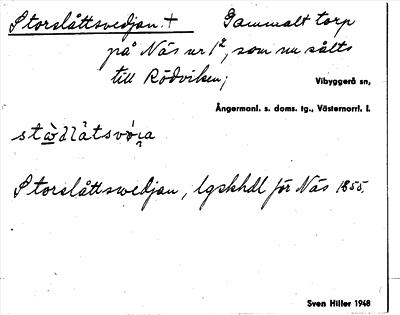 Storslåttsvedjan. + Gammalt torp
på Näs nr 1², som nu sålts
till Rödviken;
Vibyggerå sn,
Ångermanl. s. doms. tg., Västernorrl. l.
Storslåttswedjan, lgskhdl för Näs 1855.
Sven Hiller 1948